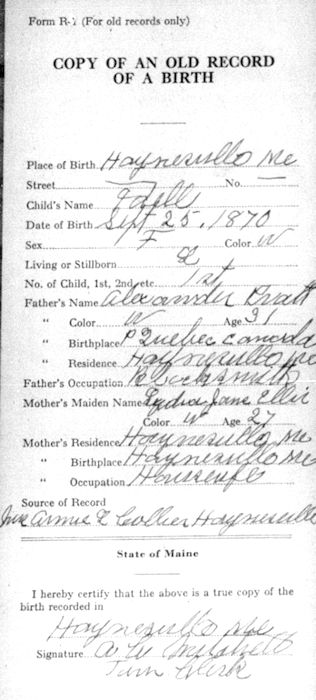 Form R-7 (For old records only)
COPY OF AN OLD RECORD
OF A BIRTH
Place of Birth Haynesville Me
Street No.
Child's Name
Date of Birth Sept 25, 1870
Sex F Color W
Living or Stillborn L
No. of Child, 1st, 2nd, etc. 1st
Father's Name Alexander Pratt
" Color W Age 31
" Birthplace P Quebec Canada
" Residence Haynesville Me
Father's Occupation Blacksmith
Mother's Maiden Name Lydia Jane Ellis
Color W Age 27
Mother's Residence Haynesville Me
" Birthplace Haynesville Me
" Occupation Housewife
Source of Record
Mrs Annie L Collier Haynesville
State of Maine
I hereby certify that the above is a true copy of the
birth recorded in
Haynesville Me
Signature
Town Clerk